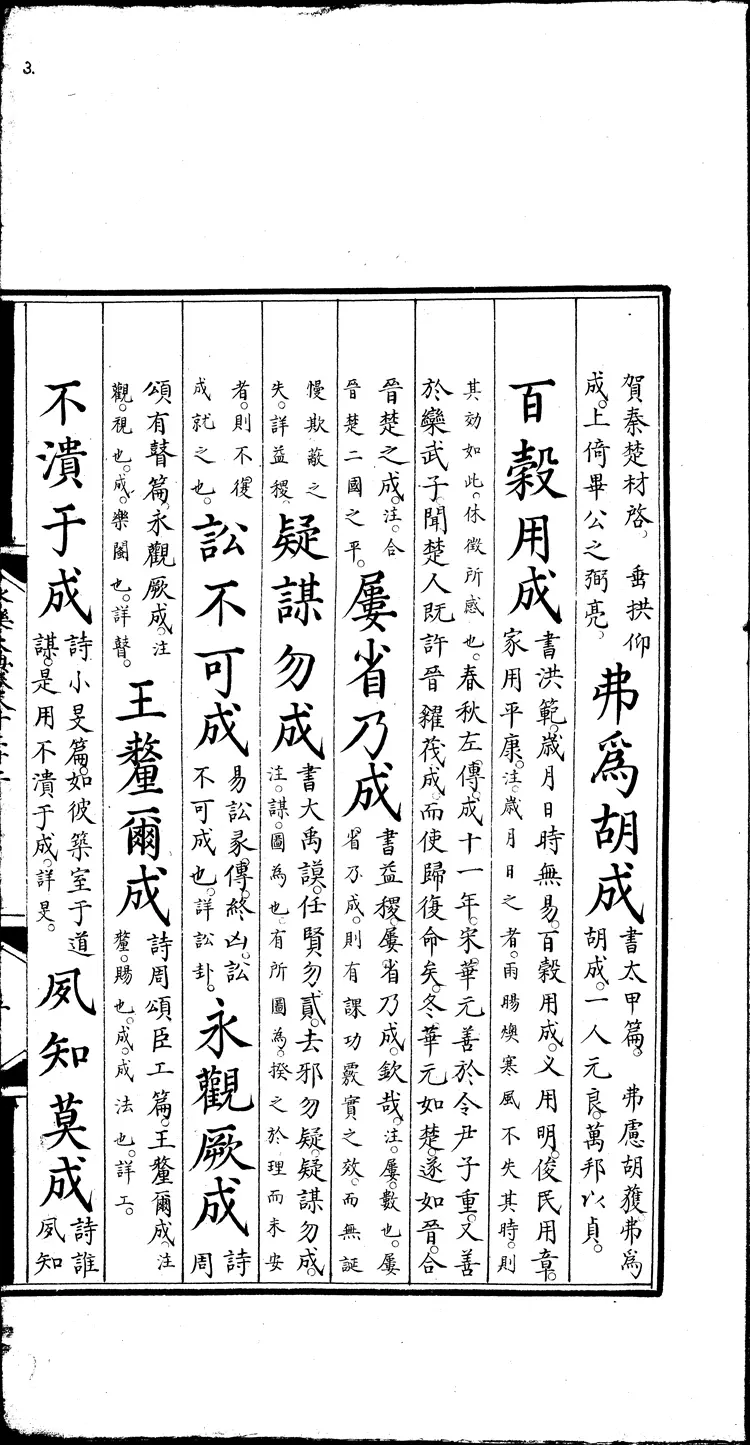 3.
賀秦楚材啓。垂拱仰
成。上倚畢公之弼亮。
弗爲胡成
書太甲篇。弗慮胡獲弗爲
胡成。一人元良。萬邦以貞。
百穀用成
書洪範。歲月日時無易。百穀用成。乂用明。俊民用章。
家用平康。注。歲月日之者。雨暘燠寒風不失其時。則
其効如此。休徵所感也。春秋左傳。成十一年。宋華元善於令尹子重。又善
於欒武子。聞楚人既許晉糴茷成。而使歸復命矣。冬華元如楚。遂如晉。合
晉楚之成。注。合
晉楚二國之平。
屢省乃成
書益稷。屢省乃成。欽哉。注。屢。數也。屢
省乃成。則有課功覈實之效。而無誕
慢欺蔽之
失。詳益稷。
疑謀勿成
書大禹謨。任賢勿貳。去邪勿疑。疑謀勿成。
注。謀。圖為也。有所圖為。揆之於理而未安
者。則不復
成就之也。
訟不可成
易訟彖傳。終凶。訟
不可成也。詳訟卦。
永觀厥成
詩
周
頌有瞽篇。永觀厥成。注
觀。視也。成。樂闋也。詳瞽。
王釐爾成
詩周頌臣工篇。王釐爾成。注
釐。賜也。成。成法也。詳工。
不潰于成
詩小旻篇。如彼築室于道
謀。是用不潰于成。詳旻。
夙知莫成
詩誰
夙知